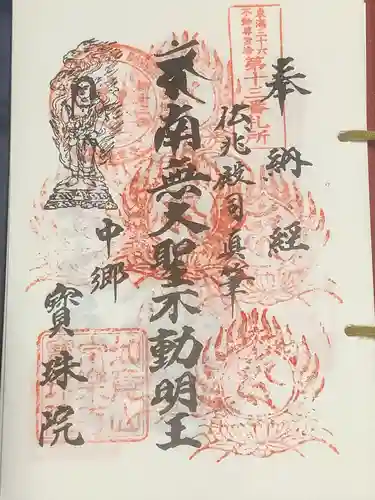 奉納経
東海三十六
不動尊霊場
第十三番札所
仏兆殿司真筆
南無大聖不動明王
中郷
寳珠院